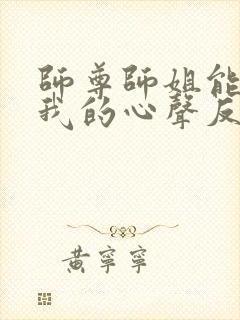 師尊師姐能
我的心聲反
黃寧寧